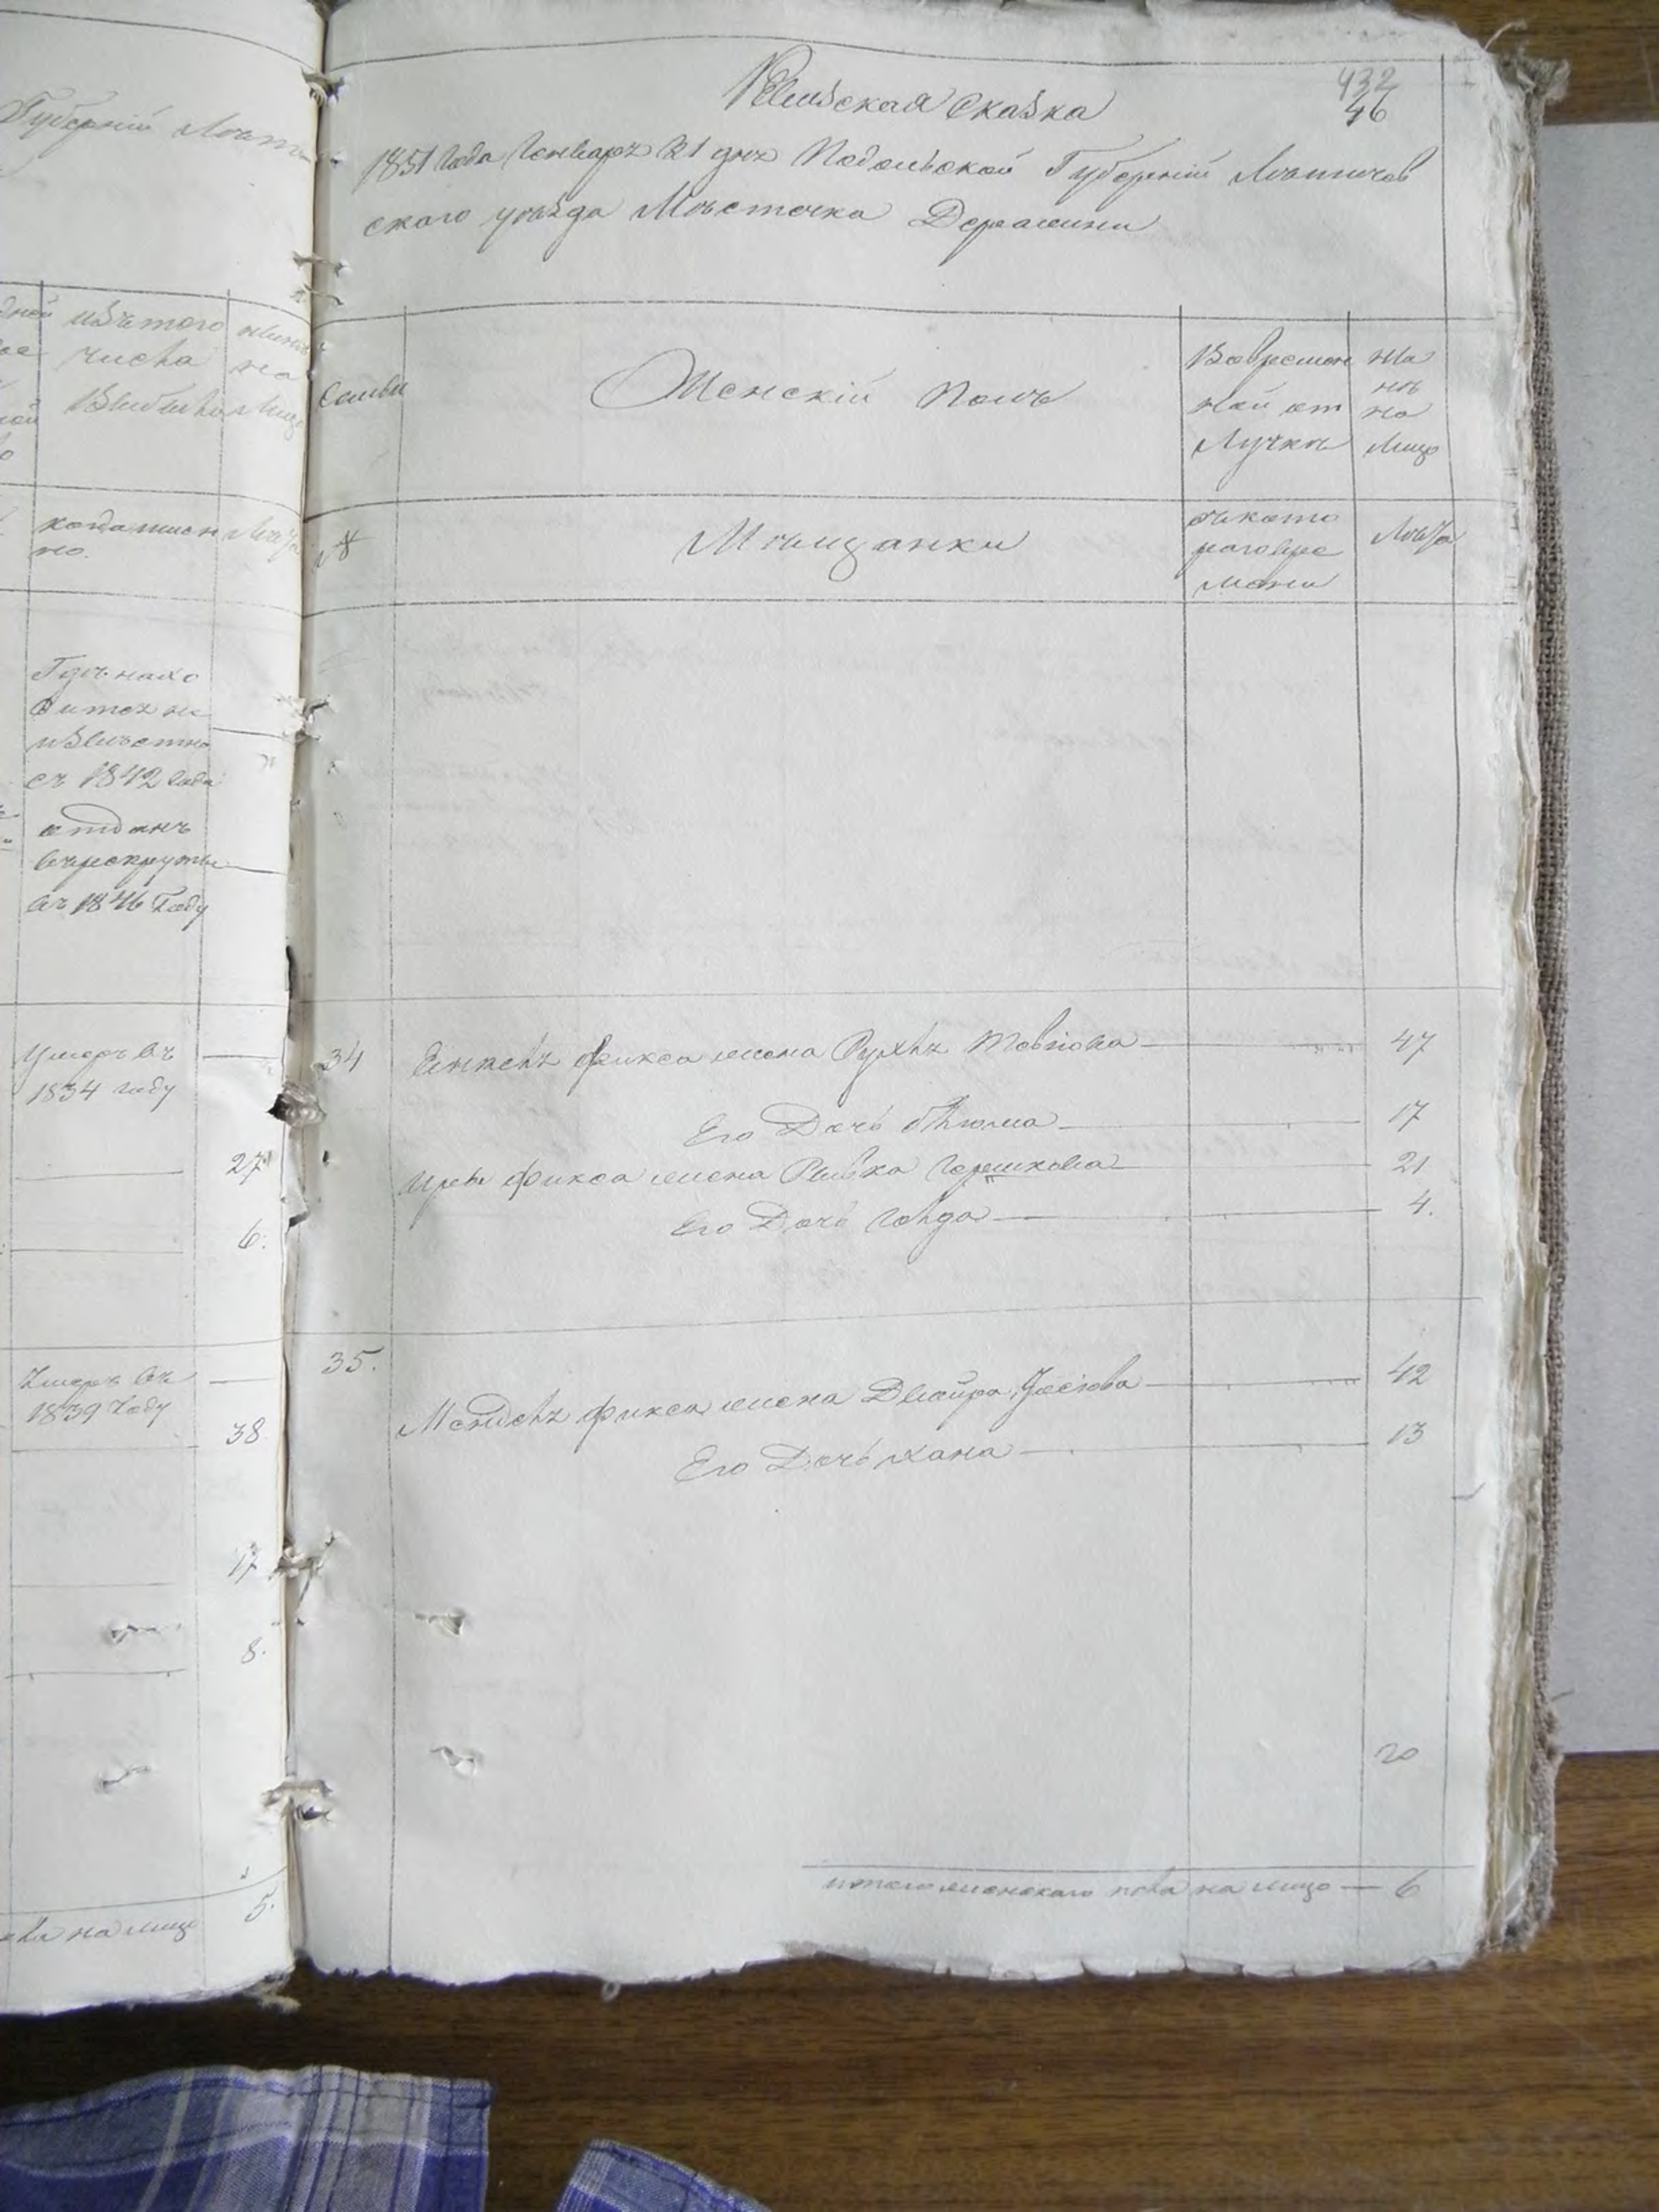 Губерній Лѣти
изъ того
числа
Выбыло
на
лицо
когда имен
но.
Лѣта
Гдѣ нахо
дится не
извѣстно
съ 1842 года
отданъ
въ рекруты
въ 1846 Году
Умеръ въ
1834 году
27
6.
Умеръ въ
1839 Году
38
17
8.
5.
на лицо
432
46
Ревизская Сказка
1851 года Генваря 21 дня Подольской Губерніи Лѣтичов
ского уѣзда Мѣсточка Деражни
Семьи
Женскій Полъ
Вовремен
ной от
Лучкѣ
На
нѣ
но
Лицо
№
Мѣщанки
съ кото
раго вре
мени
Лѣта
34 Фикса жена Рухля Товіова 47
Его Дочь Блюма 17
Фикса жена Ривка Гершкова 21
Его Дочь Голда 4.
35.
Мендель Фикса жена Двойра Іосіова 42
Его Дочь Хана 13
20
итого женскаго пола на лицо — 6